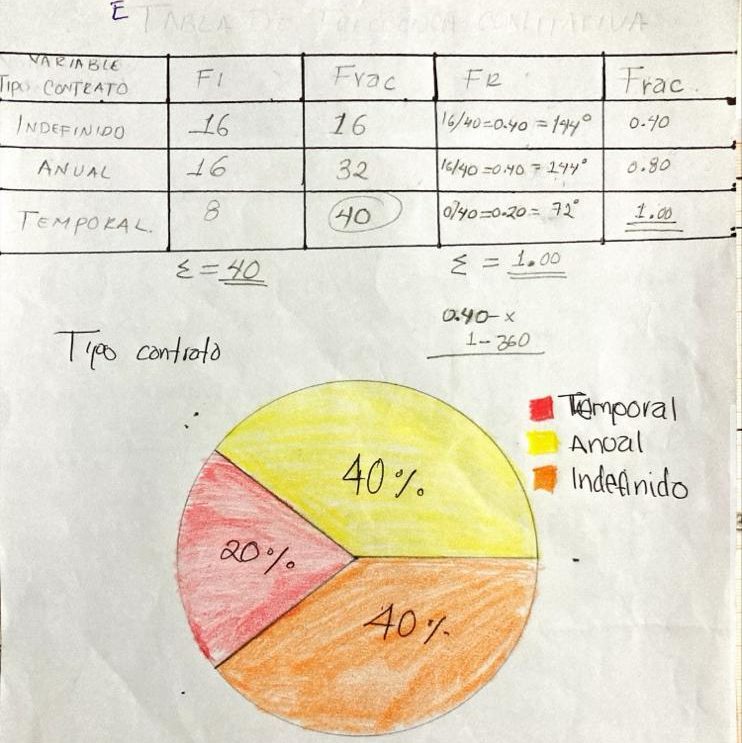 E TABLA DE FRECUENCIA CUALITATIVA
VARIABLE
TIPO CONTRATO FI Frac FR Frac.
INDEFINIDO 16 16 16/40=0.40 = 144° 0.40
ANUAL 16 32 16/40=0.40 = 144° 0.80
TEMPORAL. 8 40 0/40=0.20= 72° 1.00
Σ = 40 Σ = 1.00
0.40-x
1-360
Tipo contrato
Temporal
Anual
Indefinido
40%.
20%
40%